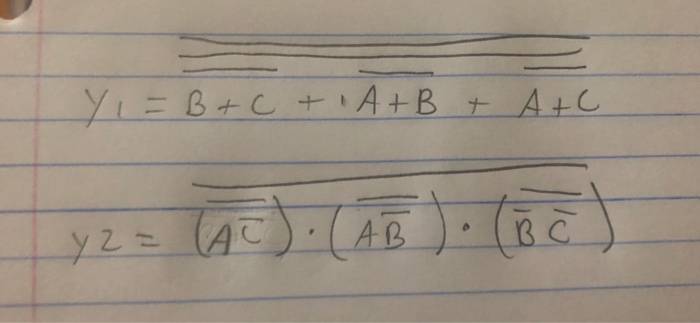 Y1 = \overline{\overline{\overline{B+C} + \overline{A+B} + \overline{A+C}}}
Y2 = \overline{(\overline{A\overline{C}}) \cdot (\overline{A\overline{B}}) \cdot (\overline{\overline{B}\,\overline{C}})}